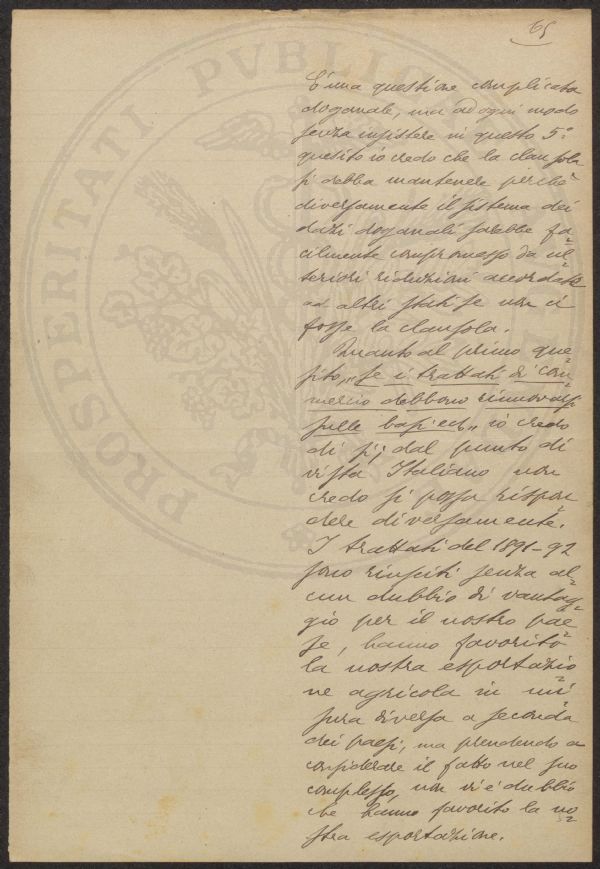 65
PROSPERITATI PVBLIC
È una questione complicata
doganale, ma ad ogni modo
senza insistere in questo 5°
quesito io credo che la clausola
si debba mantenere perchè
diversamente il sistema dei
dazi doganali sarebbe fa=
cilmente compromesso da ul=
teriori riduzioni accordate
ad altri stati se non ci
fosse la clausola.
Quanto al primo que=
sito, "se i trattati di com=
mercio debbono rinnovarsi
sulle basi ecc" io credo
di sì; dal punto di
vista Italiano non
credo si possa rispon=
dere diversamente.
I trattati del 1891-92
sono riusciti senza al=
cun dubbio di vantag=
gio per il nostro pae=
se, hanno favorito
la nostra esportazio=
ne agricola in mi=
sura diversa a seconda
dei paesi, ma prendendo a
considerare il fatto nel suo
complesso, non vi è dubbio
che hanno favorito la no=
stra esportazione.